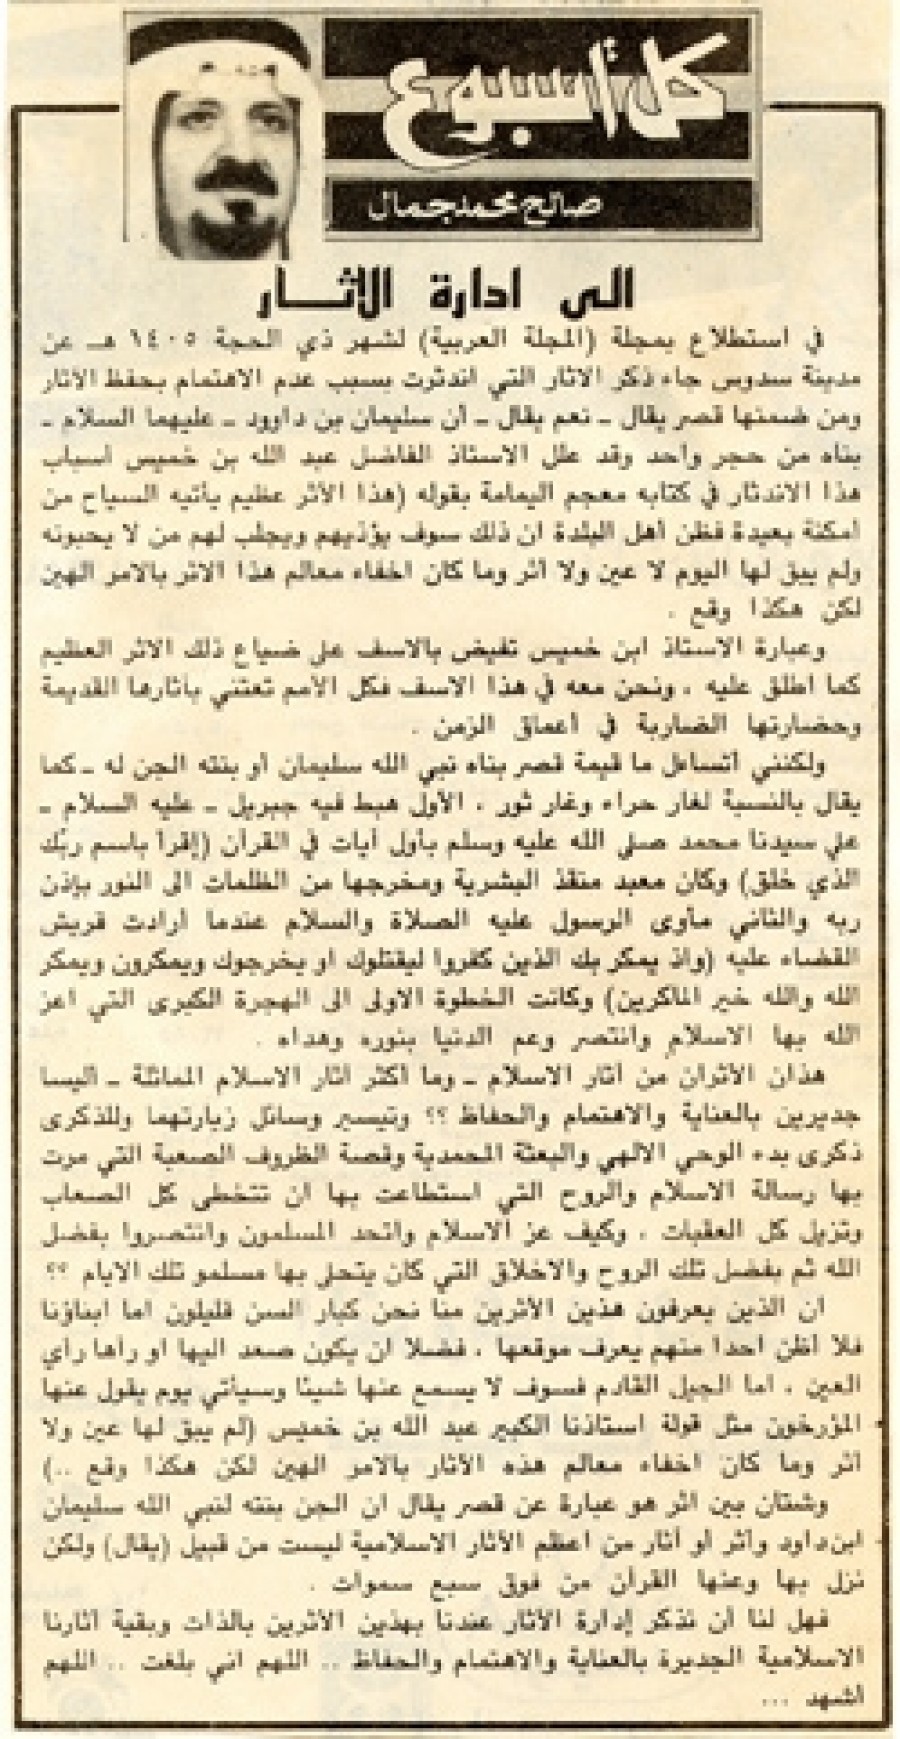 كل أسبوع
صالح محمد جمال
الى ادارة الاثــار
في استطلاع بمجلة (المجلة العربية) لشهر ذي الحجة ١٤٠٥ هـ عن
مدينة سدوس جاء ذكر الاثار التي اندثرت بسبب عدم الاهتمام بحفظ الآثار
ومن ضمنها قصر يقال ـ نعم يقال ـ أن سليمان بن داوود ـ عليهما السلام ـ
بناه من حجر واحد وقد علل الاستاذ الفاضل عبد الله بن خميس أسباب
هذا الاندثار في كتابه معجم اليمامة بقوله (هذا الأثر عظيم يأتيه السياح من
أمكنة بعيدة فظن أهل البلدة ان ذلك سوف يؤذيهم ويجلب لهم من لا يحبونه
ولم يبق لها اليوم لا عين ولا أثر وما كان اخفاء معالم هذا الاثر بالامر الهين
لكن هكذا وقع .
وعبارة الاستاذ ابن خميس تفيض بالاسف على ضياع ذلك الاثر العظيم
كما اطلق عليه ، ونحن معه في هذا الاسف فكل الأمم تعتني بآثارها القديمة
وحضارتها الضاربة في أعماق الزمن .
ولكنني أتساءل ما قيمة قصر بناه نبي الله سليمان أو بنته الجن له ـ كما
يقال بالنسبة لغار حراء وغار ثور ، الأول هبط فيه جبريل ـ عليه السلام ـ
على سيدنا محمد صلى الله عليه وسلم بأول آيات في القرآن (إقرأ باسم ربك
الذي خلق) وكان معبد منقذ البشرية ومخرجها من الظلمات الى النور بإذن
ربه والثاني مأوى الرسول عليه الصلاة والسلام عندما أرادت قريش
القضاء عليه (واذ يمكر بك الذين كفروا ليقتلوك او يخرجوك ويمكرون ويمكر
الله والله خير الماكرين) وكانت الخطوة الاولى الى الهجرة الكبرى التي اعز
الله بها الاسلام وانتصر وعم الدنيا بنوره وهداه .
هذان الأثران من آثار الاسلام ـ وما أكثر اثار الاسلام المماثلة ـ اليسا
جديرين بالعناية والاهتمام والحفاظ ؟؟ وتيسير وسائل زيارتهما وللذكرى
ذكرى بدء الوحي الالهي والبعثة المحمدية وقصة الظروف الصعبة التي مرت
بها رسالة الاسلام والروح التي استطاعت بها ان تتخطى كل الصعاب
وتزيل كل العقبات ، وكيف عز الاسلام واتحد المسلمون وانتصروا بفضل
الله ثم بفضل تلك الروح والاخلاق التي كان يتحلى بها مسلمو تلك الايام ؟؟
ان الذين يعرفون هذين الأثرين منا نحن كبار السن قليلون اما ابناؤنا
فلا أظن احدا منهم يعرف موقعها ، فضلا ان يكون صعد اليها او رأها رأي
العين ، اما الجيل القادم فسوف لا يسمع عنها شيئا وسيأتي يوم يقول عنها
المؤرخون مثل قولة استاذنا الكبير عبد الله بن خميس (لم يبق لها عين ولا
اثر وما كان اخفاء معالم هذه الآثار بالامر الهين لكن هكذا وقع ..)
وشتان بين اثر هو عبارة عن قصر يقال ان الجن بنته لنبي الله سليمان
ابن داود وآثر أو آثار من اعظم الآثار الاسلامية ليست من قبيل (يقال) ولكن
نزل بها وعنها القرآن من فوق سبع سموات .
فهل لنا أن نذكر إدارة الآثار عندنا بهذين الأثرين بالذات وبقية آثارنا
الاسلامية الجديرة بالعناية والاهتمام والحفاظ .. اللهم اني بلغت .. اللهم
أشهد ...